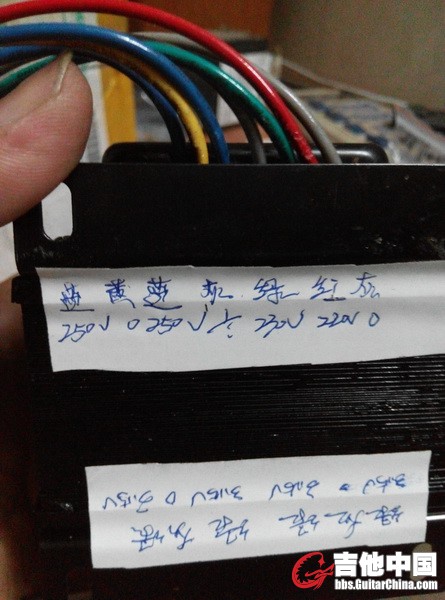 蓝 黄 蓝 绿 红 灰
250V 0 250V ⏚ 230V 220V 0
3.15V 0 3.15V 3.15V 0 3.15V
吉他中国
bbs.GuitarChina.com